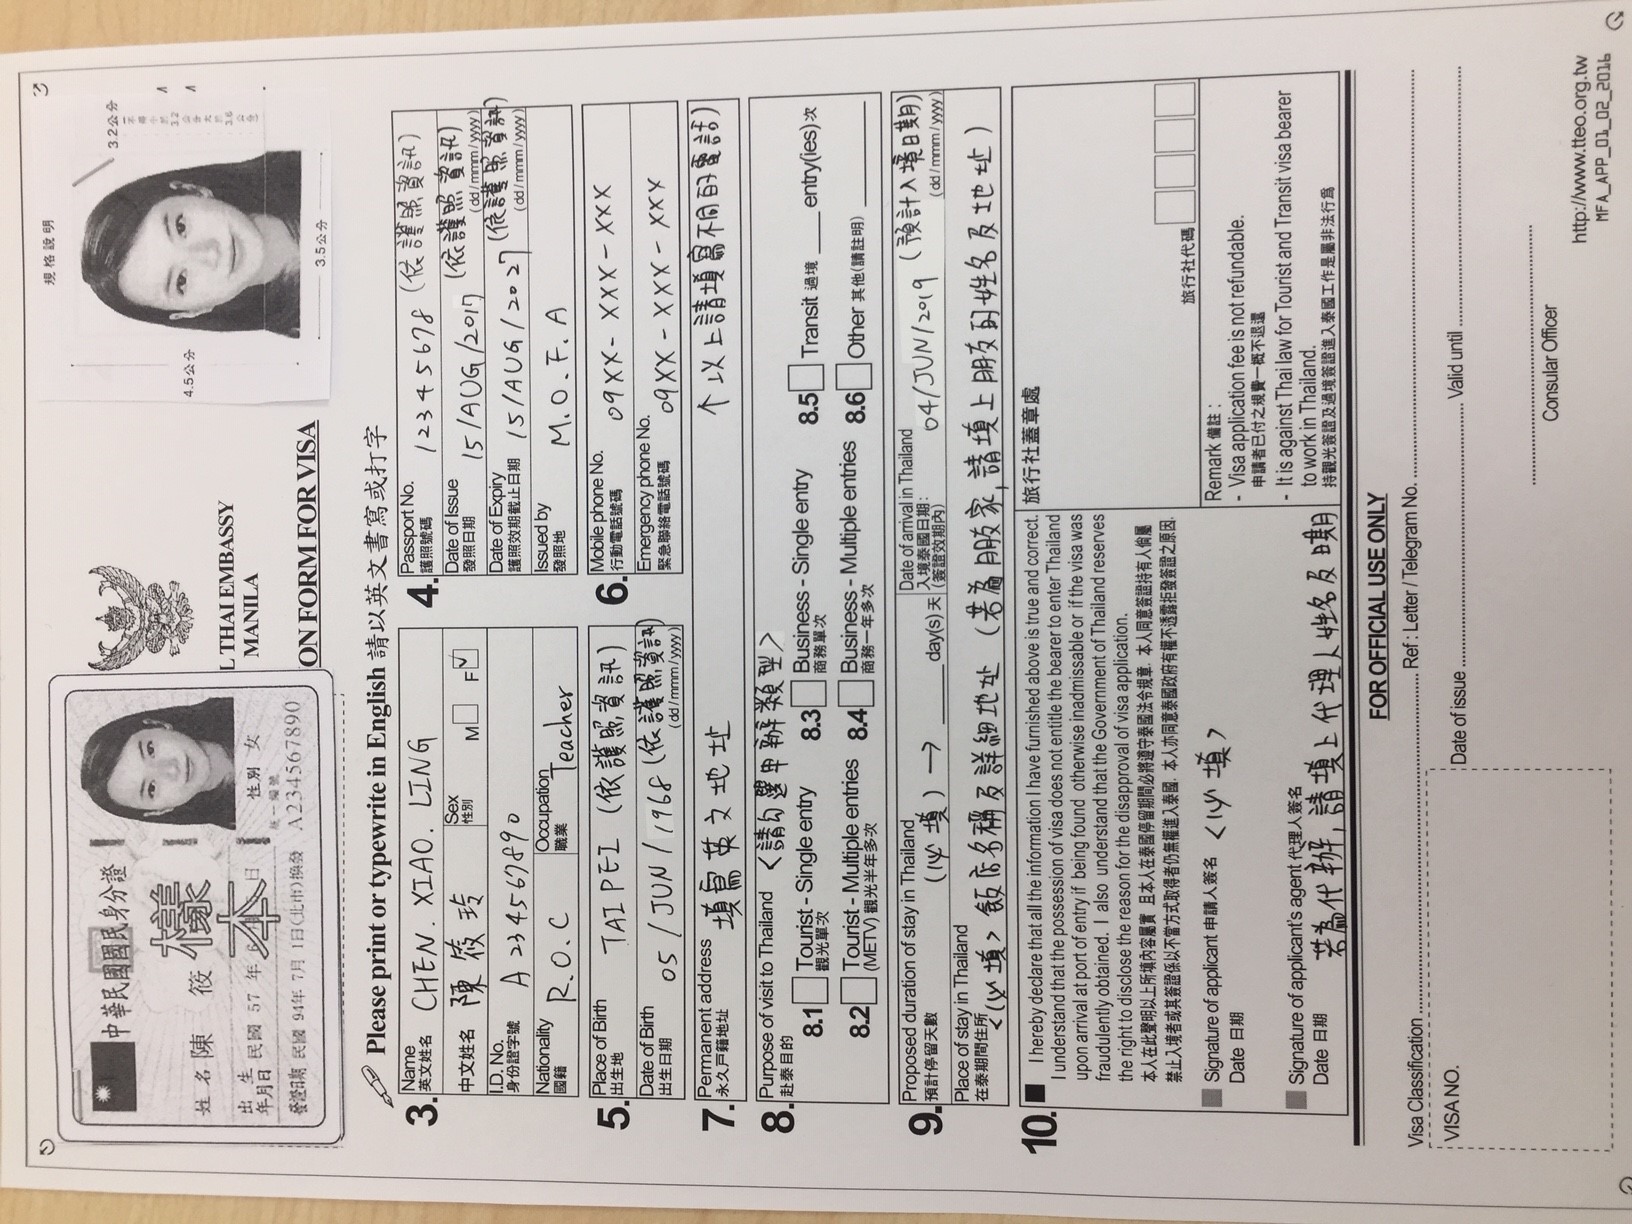 中華民國國民身分證
樣本
姓名 陳 筱
出生年月日 民國 57 年 6 日 性別 女
發證日期 民國 94年 7月 1日(北市)換發
統一編號
A234567890
L THAI EMBASSY
MANILA
ON FORM FOR VISA
規格說明
3.2公分
4.5公分
3.5公分
Please print or typewrite in English 請以英文書寫或打字
3. Name 英文姓名 CHEN. XIAO. LING
中文姓名 陳筱玲
Sex 性別 M F ✓
I.D. No. 身份證字號 A 234567890
Nationality 國籍 R.O.C
Occupation 職業 Teacher
4. Passport No. 護照號碼 12345678 (依護照資訊)
Date of Issue 發照日期 15/AUG/2017 (依護照資訊) (dd / mmm / yyyy)
Date of Expiry 護照效期截止日期 15/AUG/2027 (依護照資訊) (dd / mmm / yyyy)
Issued by 發照地 M.O.F.A
5. Place of Birth 出生地 TAIPEI (依護照資訊)
Date of Birth 出生日期 05/JUN/1968 (依護照資訊) (dd / mmm / yyyy)
6. Mobile phone No. 行動電話號碼 09XX-XXX-XXX
Emergency phone No. 緊急聯絡電話號碼 09XX-XXX-XXX
7. Permanent address 永久戶籍地址 填寫英文地址
↑ 以上請填寫不同的電話)
8. Purpose of visit to Thailand 赴泰目的 <請勾選申辦類型>
8.1 Tourist - Single entry 觀光單次
8.3 Business - Single entry 商務單次
8.5 Transit 過境 ___ entry(ies) 次
8.2 Tourist - Multiple entries (METV) 觀光半年多次
8.4 Business - Multiple entries 商務一年多次
8.6 Other 其他(請註明)
9. Proposed duration of stay in Thailand 預計停留天數 (必填) → ___ day(s) 天
Date of arrival in Thailand 入境泰國日期: (簽證效期內) 04/JUN/2019 (預計入境日期) (dd / mmm / yyyy)
Place of stay in Thailand 在泰期間住所 <必填> 飯店名稱及詳細地址 (若為朋友家,請填上朋友的姓名及地址)
10. I hereby declare that all the information I have furnished above is true and correct.
I understand that the possession of visa does not entitle the bearer to enter Thailand
upon arrival at port of entry if being found otherwise inadmissable or if the visa was
fraudulently obtained. I also understand that the Government of Thailand reserves
the right to disclose the reason for the disapproval of visa application.
本人在此聲明以上所填內容屬實 且本人在泰國停留期間必將遵守泰國法令規章. 本人同意簽證持有人倘屬
禁止入境者或其簽證係以不當方式取得者仍無權進入泰國. 本人亦同意泰國政府有權不透露拒發簽證之原因.
Signature of applicant 申請人簽名 <必填>
Date 日期
Signature of applicant's agent 代理人簽名
Date 日期 若為代辦,請填上代理人姓名及日期
旅行社蓋章處
旅行社代碼
Remark 備註 :
- Visa application fee is not refundable.
申請者已付之規費一概不退還
- It is against Thai law for Tourist and Transit visa bearer
to work in Thailand.
持觀光簽證及過境簽證進入泰國工作是屬非法行為
FOR OFFICIAL USE ONLY
Visa Classification
Ref : Letter / Telegram No.
VISA NO.
Date of issue
Valid until
Consular Officer
http://www.tteo.org.tw
MFA_APP_01_02_2016